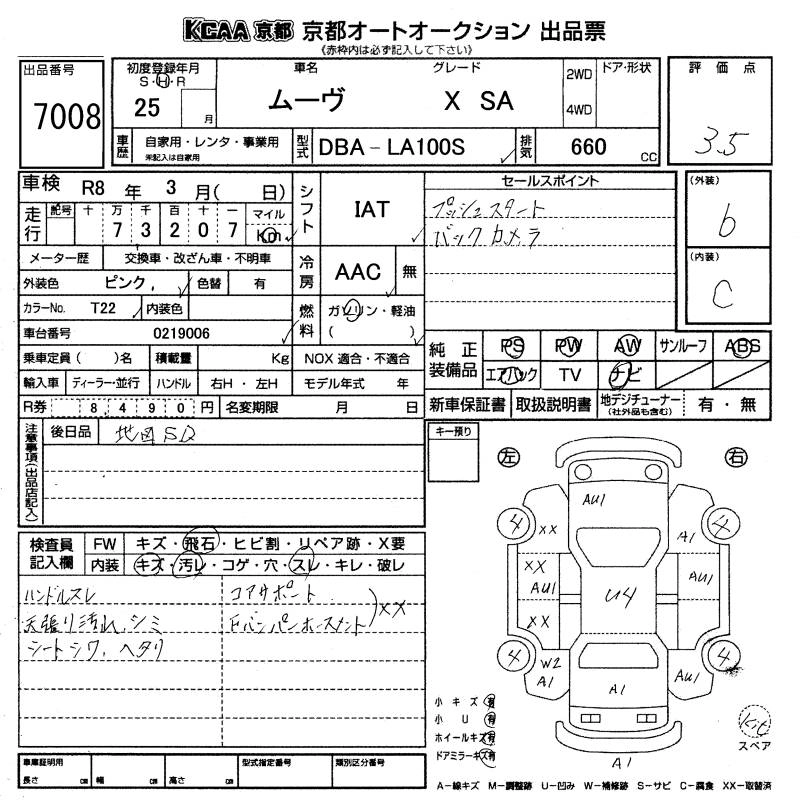 KCAA 京都 京都オートオークション 出品票
《赤枠内は必ず記入して下さい》
出品番号
7008
初度登録年月
S・H・R
25 月
車名
ムーヴ
グレード
X SA
2WD
4WD
ドア・形状
評価点
3.5
車歴
自家用・レンタ・事業用
未記入は自家用
型式
DBA-LA100S
排気
660 CC
車検 R8 年 3 月( 日)
走行
記号 十 万 千 百 十 一
7 3 2 0 7
マイル
Km
シフト
IAT
セールスポイント
プッシュスタート
バックカメラ
(外装)
b
(内装)
C
メーター歴 交換車・改ざん車・不明車
外装色 ピンク, 色替 有
冷房
AAC 無
カラーNo. T22 内装色
燃料
ガソリン・軽油
( )
車台番号 0219006
乗車定員( )名 積載量 Kg NOX 適合・不適合
輸入車 ディーラー・並行 ハンドル 右H・左H モデル年式 年
R券 8,490円 名変期限 月 日
純正装備品
PS PW AW サンルーフ ABS
エアバック TV ナビ
新車保証書 取扱説明書 地デジチューナー
(社外品も含む)
有・無
注意事項(出品店記入)
後日品 地図SD
キー預り
左 右
検査員記入欄
FW キズ・飛石・ヒビ割・リペア跡・X要
内装 キズ・汚レ・コゲ・穴・スレ・キレ・破レ
ハンドルスレ
天張り汚れ、シミ
シートシワ、ヘタリ
コアサポート
FバンパーホースメントXX
AU1
4 XX A1 4
XX AU1 U4 AU1
XX
4 W2 A1 A1 AU1 4
A1
小キズ 有
小U 有
ホイールキズ 有
ドアミラーキズ 有
Kit
スペア
車庫証明用
長さ cm 幅 cm 高さ cm
型式指定番号
類別区分番号
A-線キズ M-調整跡 U-凹み W-補修跡 S-サビ C-腐食 XX-取替済